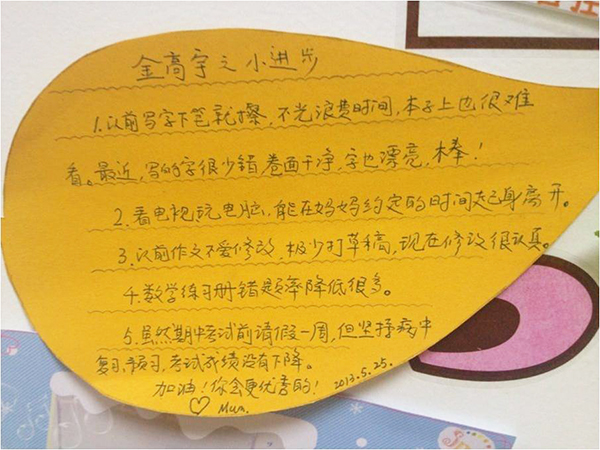 金高宇之小进步
1.以前写字下笔就擦,不光浪费时间,本子上也很难
看。最近,写的字很少错,卷面干净,字也漂亮,棒!
2.看电视玩电脑,能在妈妈约定的时间起身离开。
3.以前作文不爱修改,极少打草稿,现在修改很认真。
4.数学练习册错题率降低很多。
5.虽然期中考试前请假一周,但坚持病中
复习、预习,考试成绩没有下降。
加油!你会更优秀的! 2013.5.25.
♡ Mum.